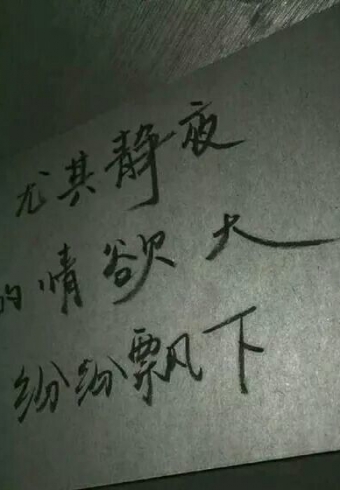 尤其静夜
的情欲大
纷纷飘下